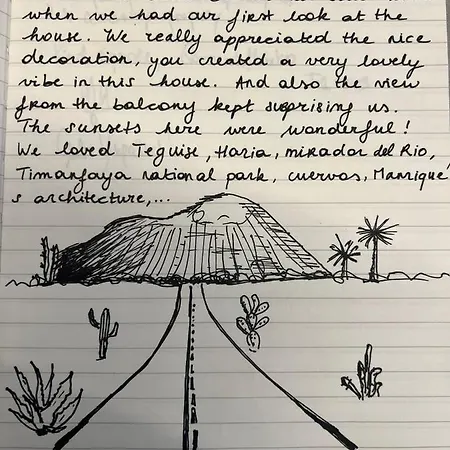 when we had our first look at the
house. We really appreciated the nice
decoration, you created a very lovely
vibe in this house. And also the view
from the balcony kept suprising us.
The sunsets here were wonderful!
We loved Teguise, Haria, mirador del Rio,
Timanfaya national park, cuervos, Manrique'
s architecture,...